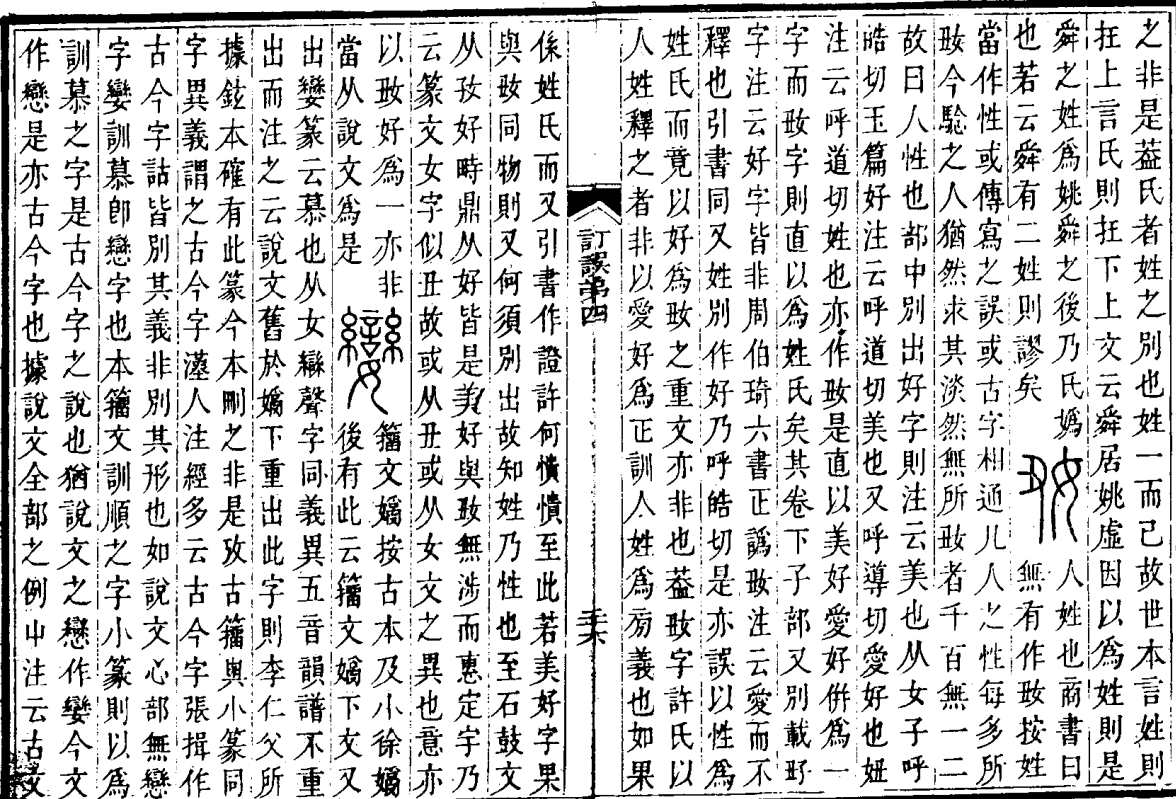 之非是葢氏者姓之別也姓一而已故世本言姓則
在上言氏則在下上文云舜居姚虛因以爲姓則是
舜之姓爲姚舜之後乃氏嬀
也若云舜有二姓則謬矣
𡚽
人姓也商書曰
無有作𡚽按姓
當作性或傳寫之誤或古字相通凡人之性每多所
𡚽今驗之人猶然求其淡然無所𡚽者千百無一二
故曰人性也部中別出好字則注云美也从女子呼
皓切玉篇好注云呼道切美也又呼導切愛好也妞
注云呼道切姓也亦作𡚽是直以美好愛好併爲一
字而𡚽字則直以爲姓氏矣其卷下子部又別載𡥆
字注云好字皆非周伯琦六書正譌𡚽注云愛而不
釋也引書同又姓別作好乃呼皓切是亦誤以性爲
姓氏而竟以好爲𡚽之重文亦非也葢𡚽字許氏以
人姓釋之者非以愛好爲正訓人姓爲旁義也如果
訂誤弟四
二十六
係姓氏而又引書作證許何憒憒至此若美好字果
與𡚽同物則又何須別出故知姓乃性也至石鼓文
从孜好時鼎从好皆是美好與𡚽無涉而惠定宇乃
云篆文女字似丑故或从丑或从女文之異也意亦
以𡚽好爲一亦非
當从說文爲是
孌
籒文㜻按古本及小徐㜻
後有此云籒文㜻下文又
出孌篆云慕也从女䜌聲字同義異五音韻譜不重
出而注之云說文舊於㜻下重出此字則李仁父所
據鉉本確有此篆今本刪之非是攷古籒與小篆同
字異義謂之古今字漢人注經多云古今字張揖作
古今字詁皆別其義非別其形也如說文心部無戀
字孌訓慕卽戀字也本籒文訓順之字小篆則以爲
訓慕之字是古今字之說也猶說文之戀作孌今文
作戀是亦古今字也據說文全部之例中注云古文